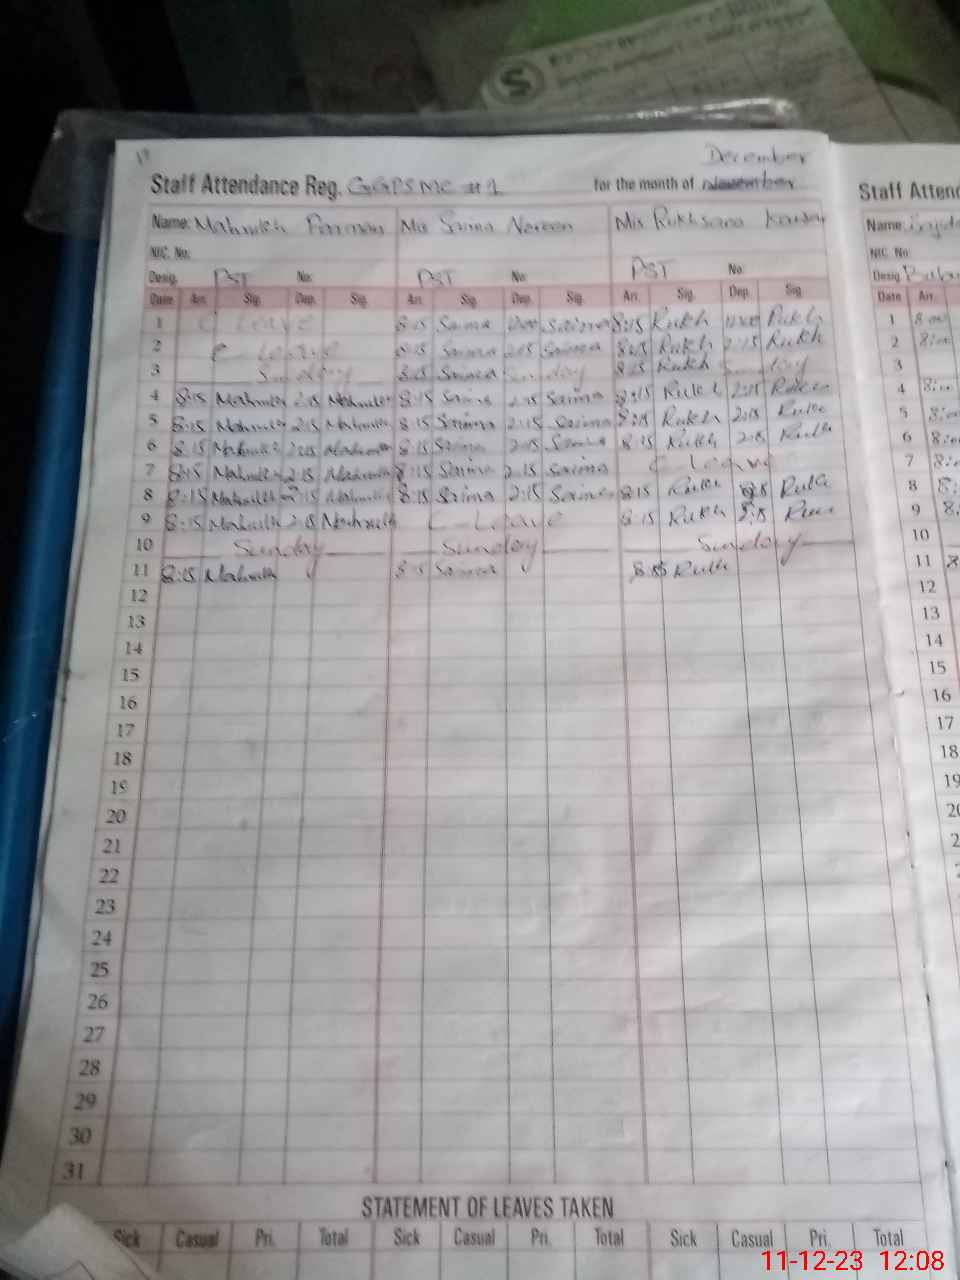 December
Staff Attendance Reg. GGPS MC #1 for the month of
Staff Attend
Name: Mahwish Parman Mis Saima Noreen Mis Rukhsana Kausar
Name:
NIC. No.
NIC. No
Desig. PST No: PST No PST No
Desig
Date Arr. Sig. Dep. Sig. Arr. Sig. Dep. Sig. Arr. Sig. Dep. Sig.
Date Arr.
1 C Leave 8:15 Saima Saima 8:15 Rukh Rukh
1
2 C Leave 8:15 Saima 2:15 Saima 8:15 Rukh 2:15 Rukh
2
3 Sunday 8:15 Saima Sunday 8:15 Rukh Sunday
3
4 8:15 Mahwish 2:15 Mahwish 8:15 Saima 2:15 Saima 8:15 Rukh 2:15 Rukh
4
5 8:15 Mahwish 2:15 Mahwish 8:15 Saima 2:15 Saima 8:15 Rukh 2:15 Rukh
5
6 8:15 Mahwish 2:15 Mahwish 8:15 Saima 2:15 Saima 8:15 Rukh 2:15 Rukh
6
7 8:15 Mahwish 2:15 Mahwish 8:15 Saima 2:15 Saima C Leave
7
8 8:15 Mahwish 2:15 Mahwish 8:15 Saima 2:15 Saima 8:15 Rukh Rukh
8
9 8:15 Mahwish 2:15 Mahwish C-Leave 8:15 Rukh 2:15
9
10 Sunday Sunday Sunday
10
11 8:15 Mahwish 8:15 Saima 8:15 Rukh
11
12
12
13
13
14
14
15
15
16
16
17
17
18
18
19
19
20
21
22
23
24
25
26
27
28
29
30
31
STATEMENT OF LEAVES TAKEN
Sick Casual Pri. Total Sick Casual Pri. Total Sick Casual Pri. Total
11-12-23 12:08